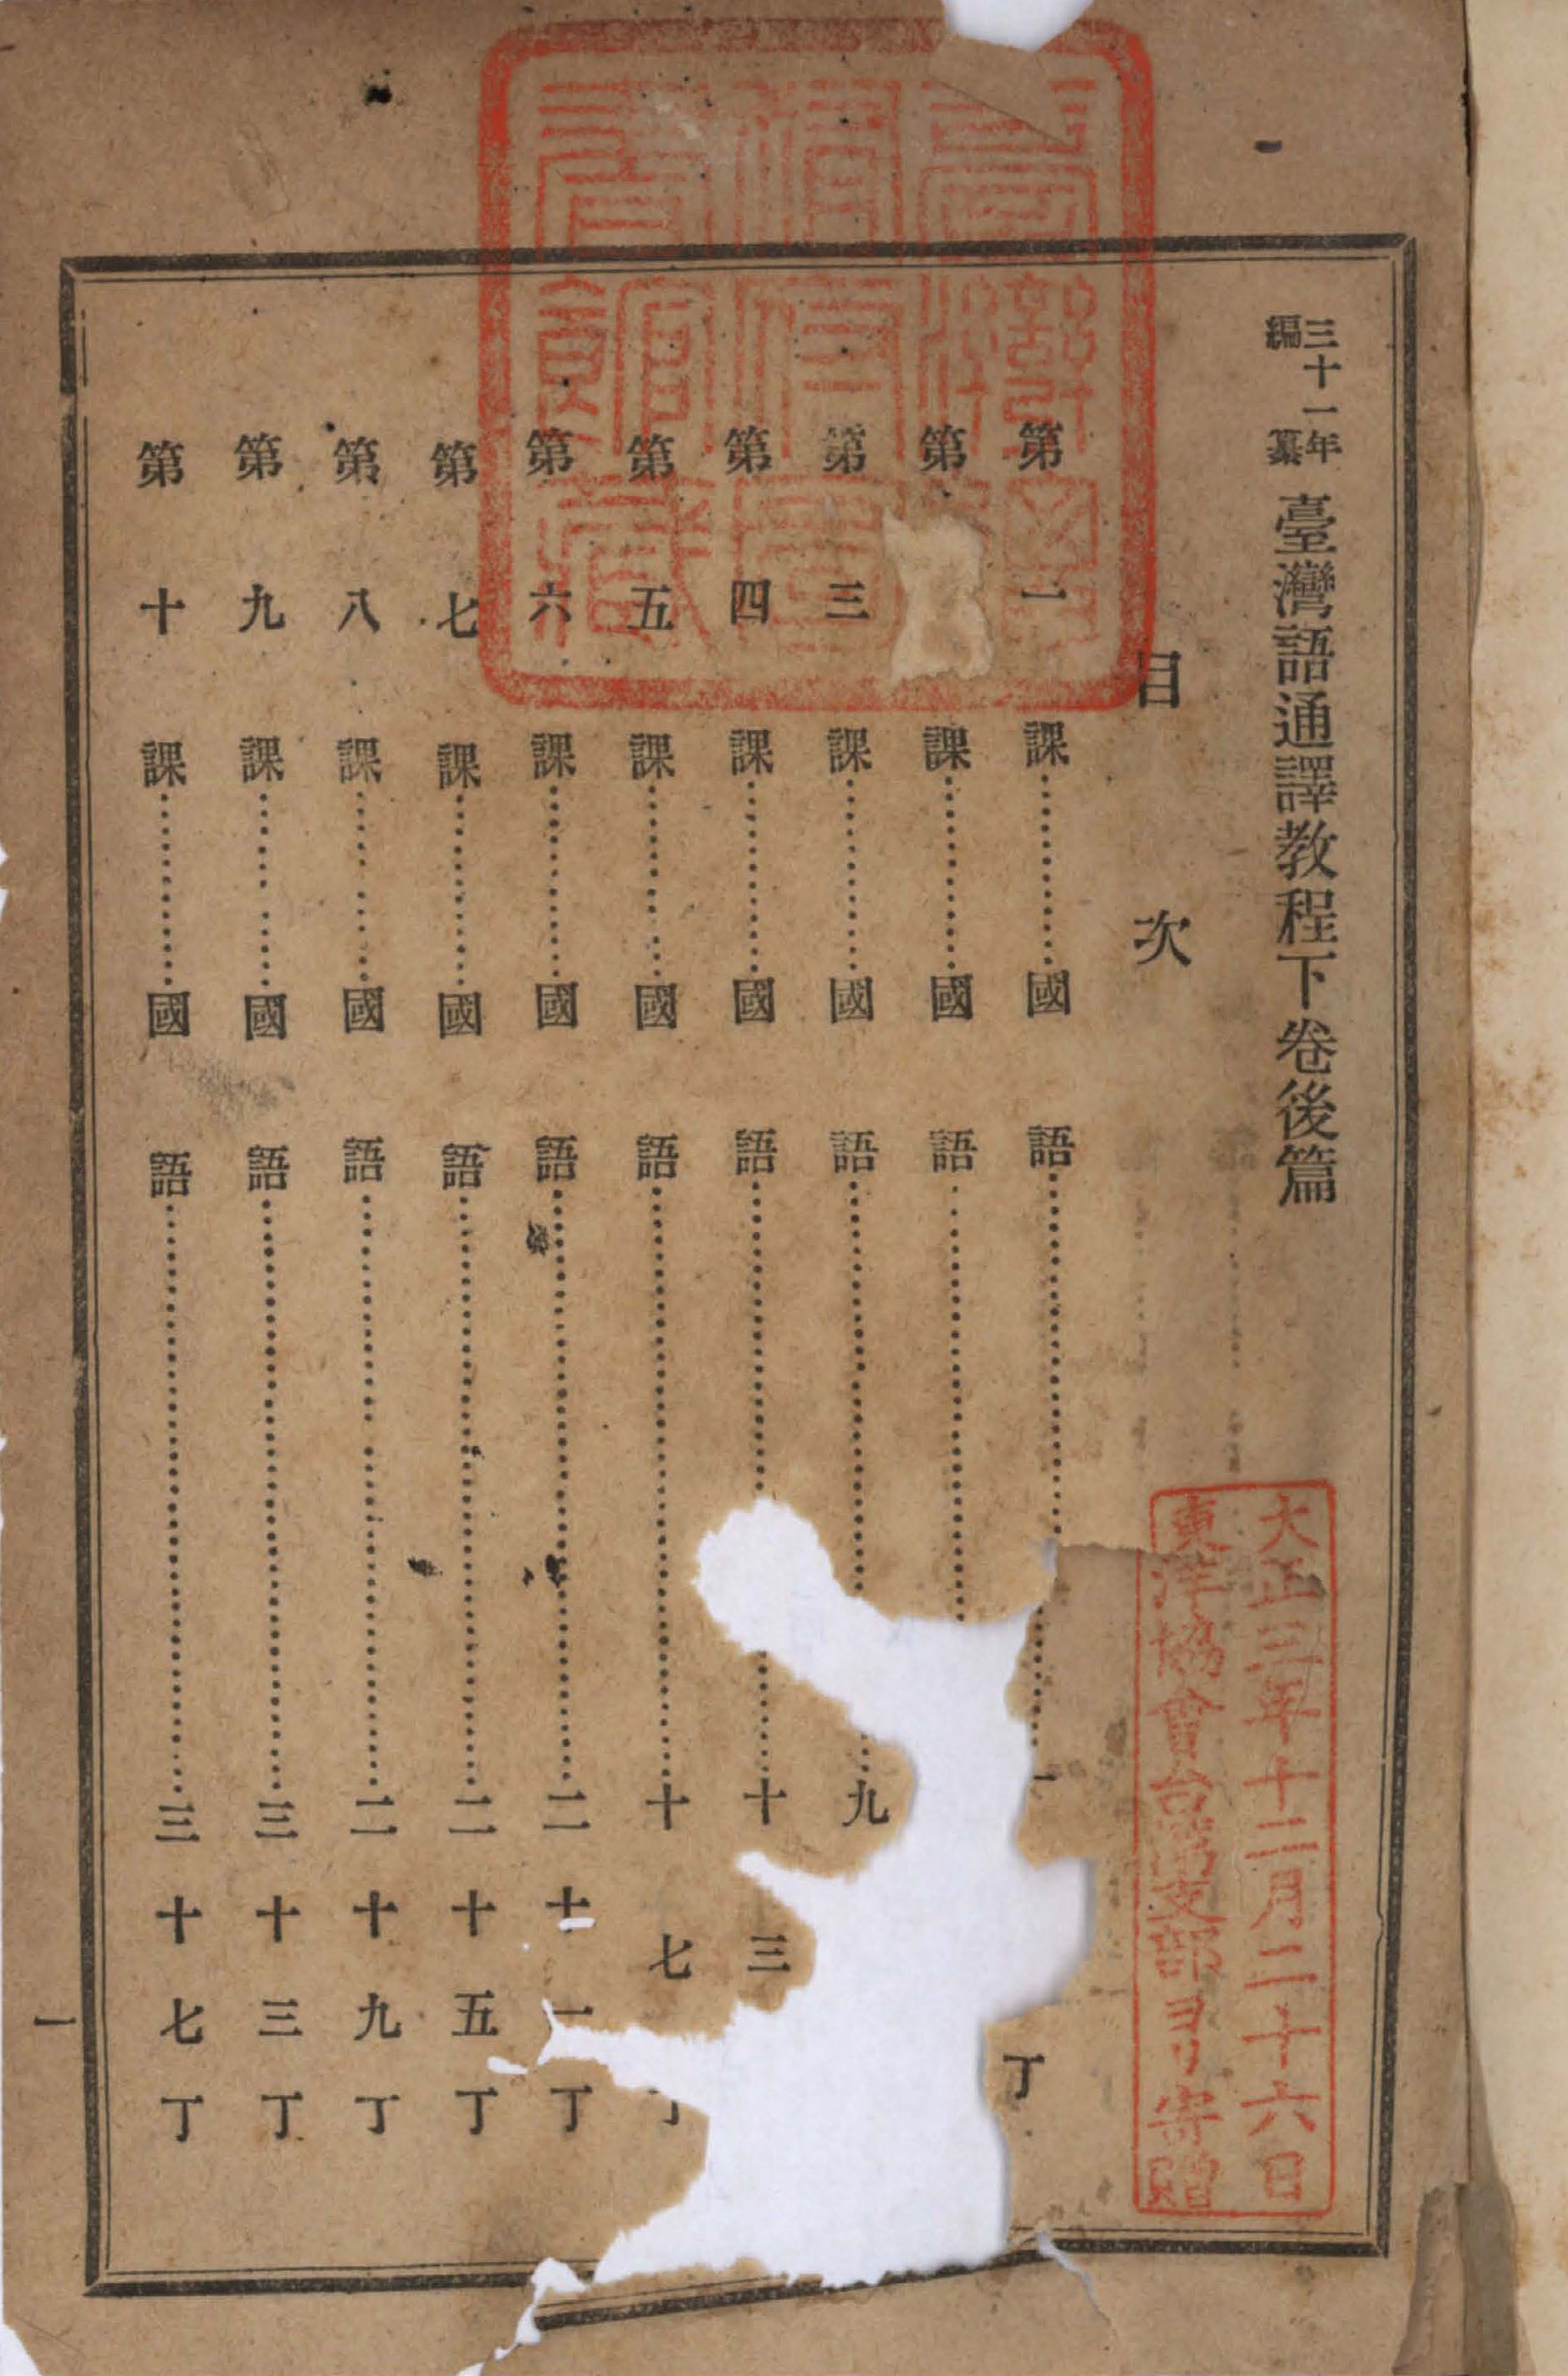 三十一年編纂 臺灣語通譯教程下卷後篇
目次
第一課…………國語…………一丁
第 課…………國語…………
第三課…………國語…………九
第四課…………國語…………十三
第五課…………國語…………十七丁
第六課…………國語…………二十一丁
第七課…………國語…………二十五丁
第八課…………國語…………二十九丁
第九課…………國語…………三十三丁
第十課…………國語…………三十七丁
一
大正三年十二月二十六日
東洋協會台灣支部ヨリ寄贈